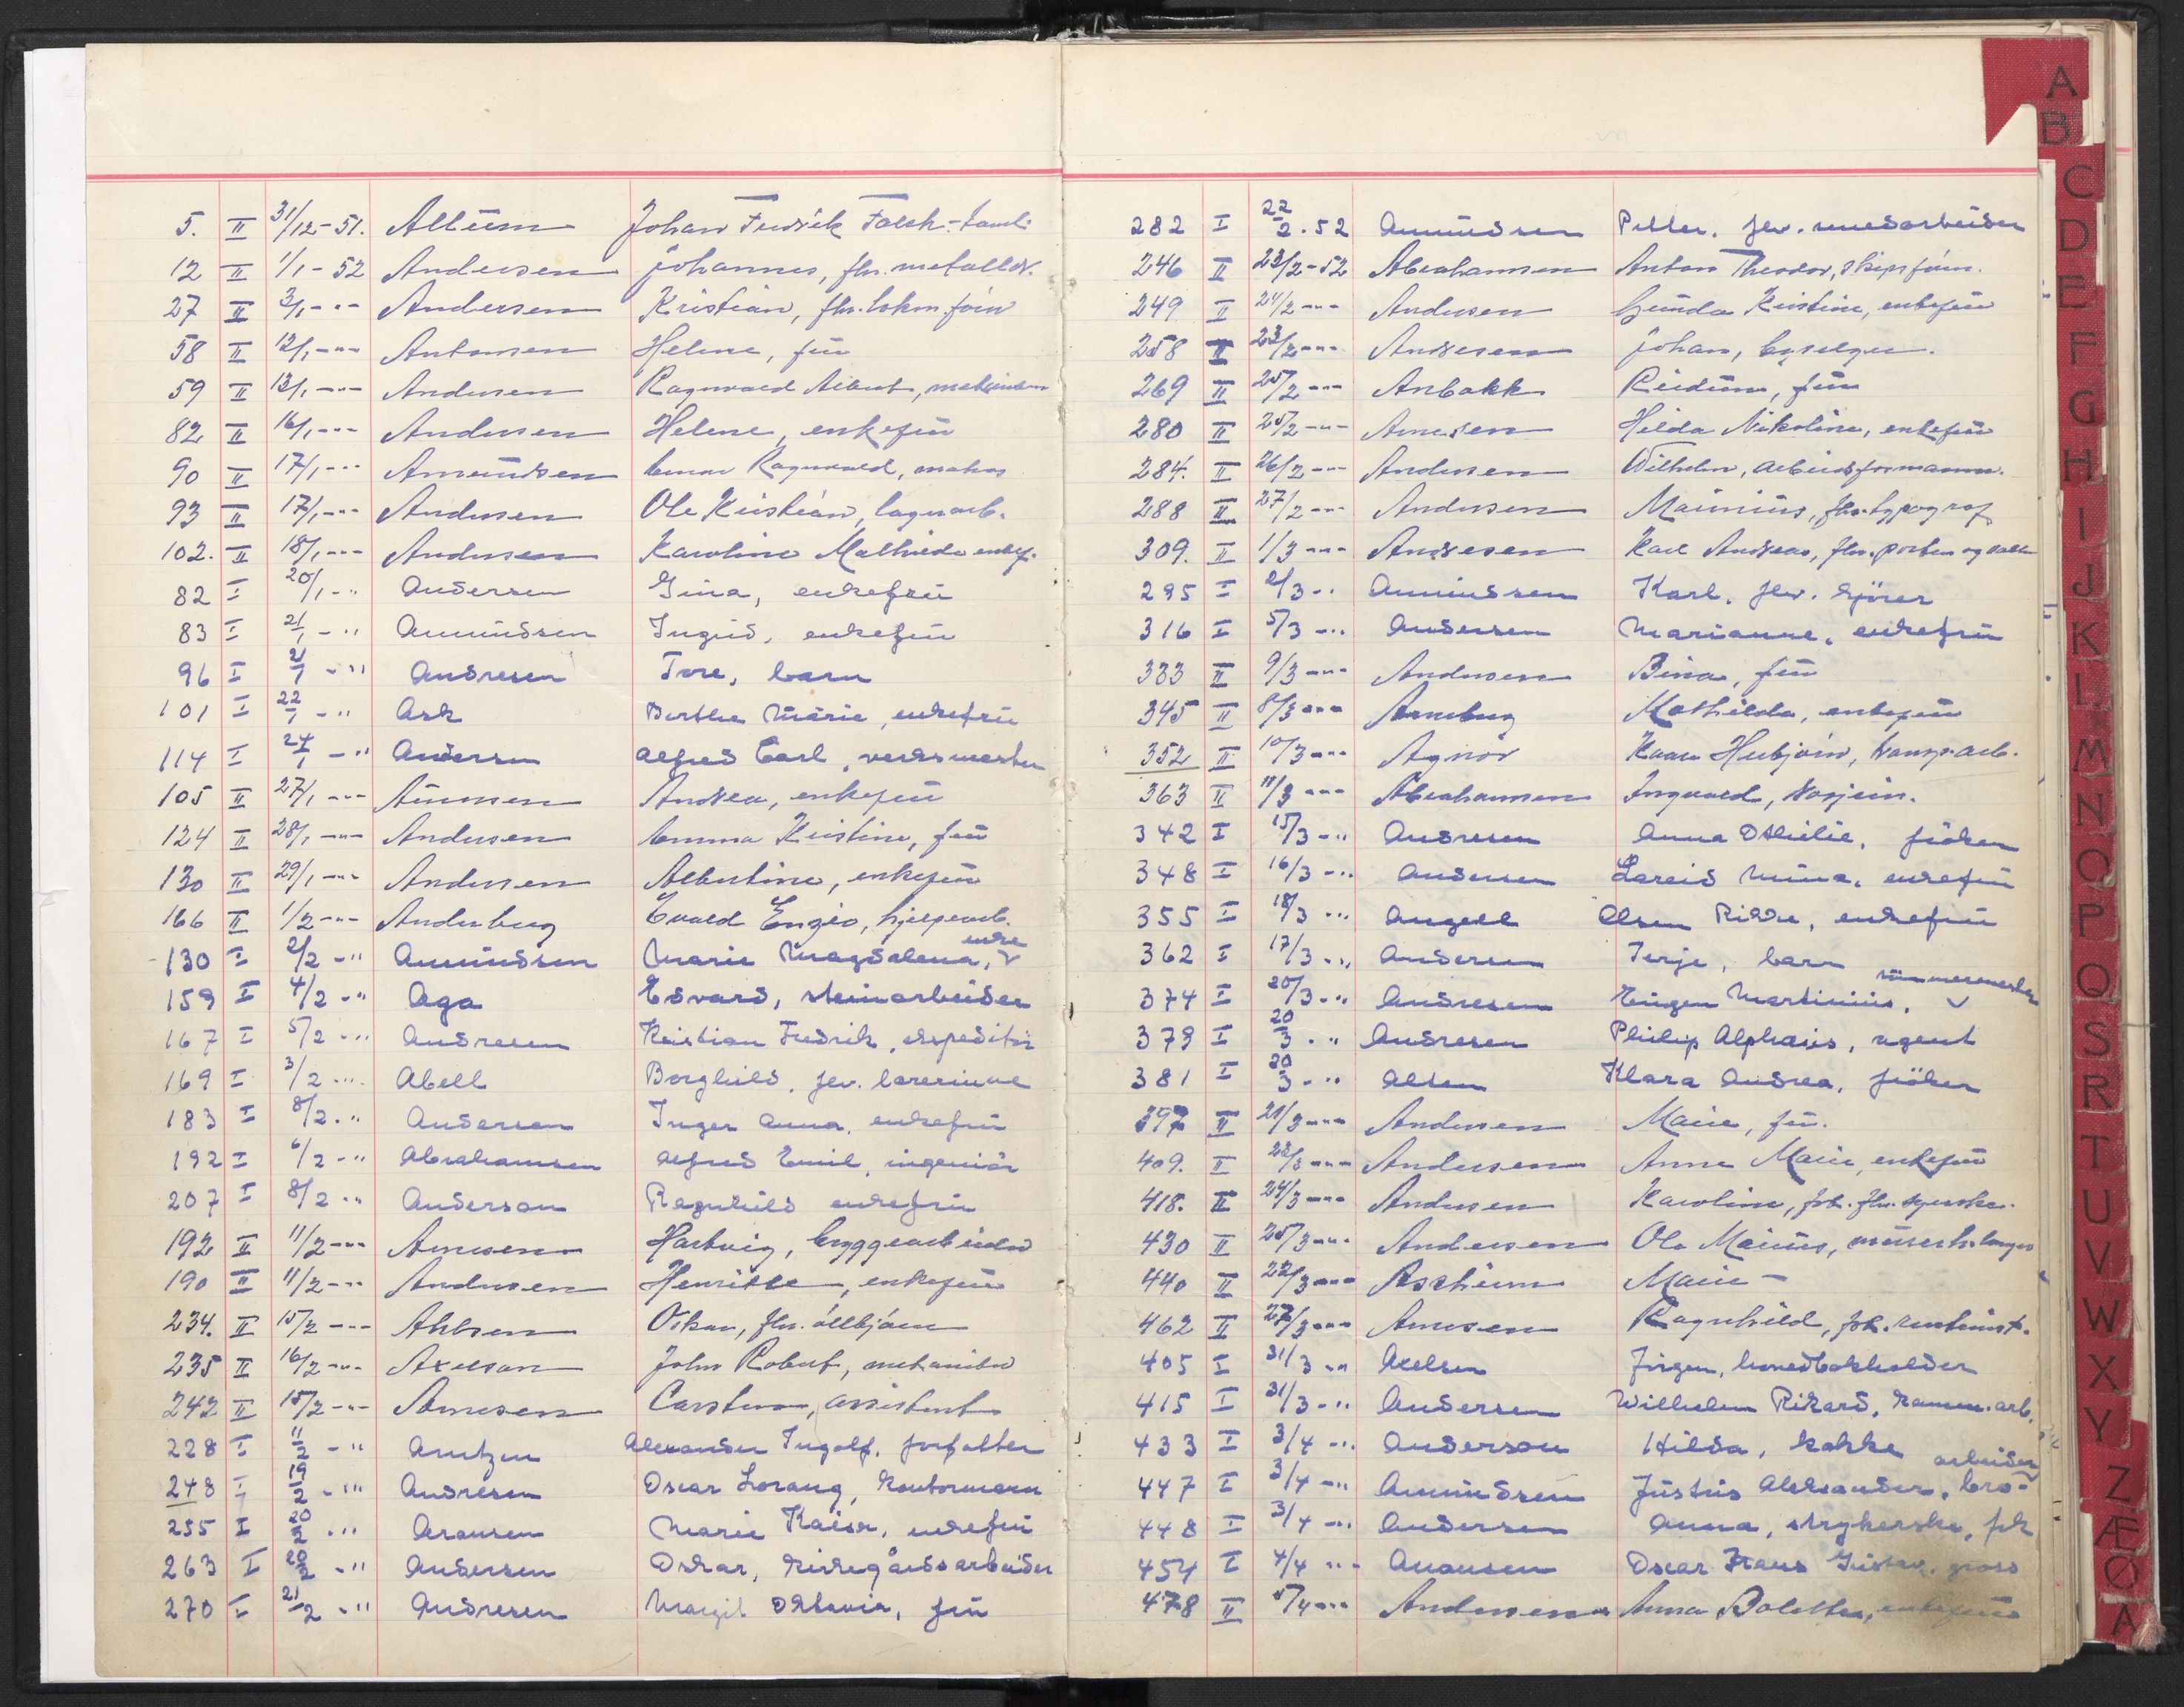 5. II 31/12-51. Alteen Johan Fredrik Falck
12 II 1/1-52 Andersen Johannes, fhv. metalldr.
27 II 3/1-"- Andersen Kristian, fhv. lokm.
58 II 12/1-"- Antonsen Helene, frü
59 II 13/1-"- Andersen Ragnvald Albert,
82 II 16/1-"- Andersen Helene, enkefrü
90 II 17/1-"- Amündsen Einar Ragnvald,
93 II 17/1-"- Andersen Ole Kristian, lagerarb.
102. II 18/1-"- Andersen Karoline Mathilde enkef.
82 I 20/1-" Andersen Gina, enkefrü
83 I 21/1-" Amündsen Ingrid, enkefrü
96 I 21/1-" Andresen Tore, barn
101 I 22/1-" Ask Berthe Marie, enkefrü
114 I 24/1-" Andersen Alfred Carl, verksmester
105 II 27/1-"- Andrea, enkefrü
124 II 28/1-"- Andersen Emma Kristine, frü
130 II 29/1-"- Andersen Albertine, enkefrü
166 II 1/2-"- Anderberg Evald Enzio, hjelpearb.
130 I 2/2-" Amündsen Marie Magdalena, enke
159 I 4/2-" Aga Edvard, steinarbeider
167 I 5/2-" Andresen Kristian Fredrik, ekspeditör
169 I 3/2-" Abell Borghild, fev. lærerinne
183 I 8/2-" Andersen Inger Anna, enkefrü
192 I 6/2-" Abrahamsen Alfred Emil, ingeniör
207 I 8/2-" Anderson Ragnhild enkefrü
192 II 11/2-"- Arnesen Hartvig, bryggearbeider
190 II 11/2-"- Andersen Henriette, enkefrü
234. II 15/2-"- Ahlsen Oskar, fhv.
235 II 16/2-"- Axelson John Robert, mekaniker
242 II 15/2-"- Arnesen Carsten, assistent
228 I 11/2-" Arntzen Alexander Ingolf, forfatter
248 I 19/2-" Andresen Oscar Lorang, kontormann
255 I 20/2-" Aransen Marie Kaisa, enkefrü
263 I 20/2-" Andersen Oskar, kirkegårdsarbeider
270 I 21/2-" Andresen Margit Oktavia, frü
282 I 22/2.52 Amündsen Petter, fev. murarbeider
246 II 23/2-52 Abrahamsen Anton Theodor, skipsförer.
249 II 21/2-"- Andersen Günda Kristine, enkefrü
258 II 23/2-"- Andresen Johan, byselger.
269 II 25/2-"- Anbakk Reidün, frü
280 II 25/2-"- Arnesen Hilda Nikoline, enkefrü
284. II 26/2-"- Andersen Wilhelm, arbeidsformann.
288 II 27/2-"- Andersen fhv. typograf
309. II 1/3-"- Andresen Karl Andreas, fhv.
295 I 2/3-" Amündsen Karl, fev. kjörer
316 I 5/3-" Andersen Marianne, enkefrü
333 II 9/3-"- Andersen Bina, frü
345 II 8/3-"- Arneberg Mathilde, enkefrü
352 II 10/3-"- Agnor Kaare Herbjörn, transp.arb.
363 II 11/3-"- Abrahamsen Ingvald,
342 I 15/3-" Andresen Anna Othilie, fröken
348 I 16/3-" Andersen Lareis Mina, enkefrü
355 I 18/3-" Angell Olsen Rikke, enkefrü
362 I 17/3-" Andersen Terje, barn
374 I 20/3-" Andresen Eugen Martinius, tömmermester
379 I 20/3-" Andresen Philip Alphons, agent
381 I 20/3-" Alsen Klara Andrea, fröken
397 II 21/3-"- Andersen Marie, frü.
409. II 22/3-"- Andersen Anna Marie, enkefrü
418. II 24/3-"- Andersen Karoline, frk. fhv. syerske.
430 II 25/3-"- Andersen Ole Marius,
440 II 22/3-"- Ascheim Marie -
462 II 27/3-"- Arnesen Ragnhild, frk.
405 I 31/3-" Axelsen Jörgen, hovedbokholder
415 I 31/3-" Andersen Wilhelm Rikard, komm.arb.
433 I 3/4-" Anderson Hilda, kokke
447 I 3/4-" Amündsen Jüstüs Aleksander, bro-arbeider
448 I 3/4-" Andersen Anna, strykerske, frk
454 I 4/4-" Oscar Hans Güstav, gross
478 II 5/4-"- Andersen Anna Bolette, enkefrü
A
B
C
D
E
F
G
H
I
J
K
L
M
N
O
P
Q
S
R
T
U
V
W
X
Y
Z
Æ
Ø
A